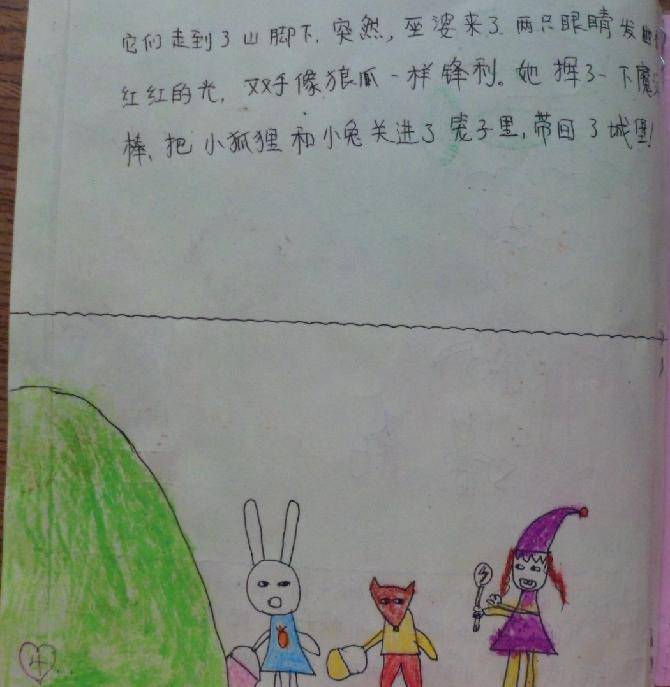 它们走到了山脚下，突然，巫婆来了，两只眼睛发出
红红的光，双手像狼爪一样锋利。她挥了一下魔法
棒，把小狐狸和小兔关进了笼子里，带回了城堡！
4